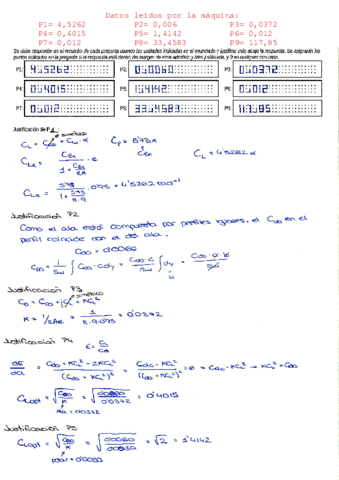 Datos leidos por la máquina:
P1= 4,5262 P2= 0,0060 P3= 0,0372
P4= 0,4015 P5= 1,4142 P6= 0,012
P7= 0,012 P8= 33,4583 P9= 117,85
Se debe responder en el recuadro de cada pregunta usando las unidades indicadas en el enunciado y justificar más abajo la respuesta. Se asignarán los
puntos indicados en la pregunta si la respuesta está dentro del margen de error admitido y bien justificada, y 0 en cualquier otro caso.
P1: 4.5262 P2: 0.0060 P3: 0.0372
P4: 0.4015 P5: 1.4142 P6: 0.012
P7: 0.012 P8: 33.4583 P9: 117.85
Justificación de P1:
simétrico
CL = CL0 + CLα · α Cℓ = 5'93α
Cℓα
CLα = Cℓα / (1 + Cℓα/πA) · e CL = 4'5262α
CLα = 5'93 / (1 + 5'93/π·9) · 0'95 = 4'5262 rad⁻¹
Justificación P2
Como el ala está compuesta por perfiles iguales, el CD0 en el
perfil coincide con el del ala.
CD0 = 0'0060
CD0 = 1/Sw ∫ Cd0 · c dy = Cd0 · c / Sw ∫ dy =
b
Justificación P3
simétrico
CD = CD0 + KCL²
K = 1/πAe = 1 / π·9·0'95 = 0'0372
Justificación P4 E = CL/CD
dE/dCL = (CD0 + KCL² - 2KCL²) / (CD0 + KCL²)² = (CD0 - KCL²) / (CD0 + KCL²)² = 0 → CD0 - KCL² → KCL² = CD0
CLopt = √(CD0/K) = √(0'0060/0'0372) = 0'4015
Justificación P5
CLopt = √(CD0/K) = √2 = 1'4142